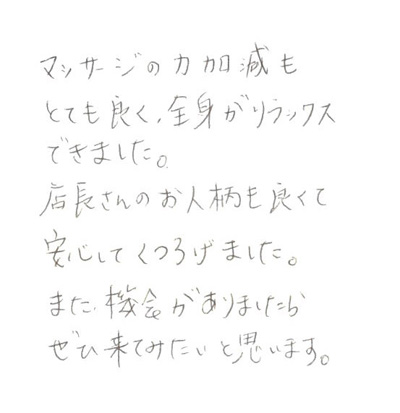 マッサージの力加減も
とても良く、全身がリラックス
できました。
店長さんのお人柄も良くて
安心してくつろげました。
また、機会がありましたら
ぜひ来てみたいと思います。